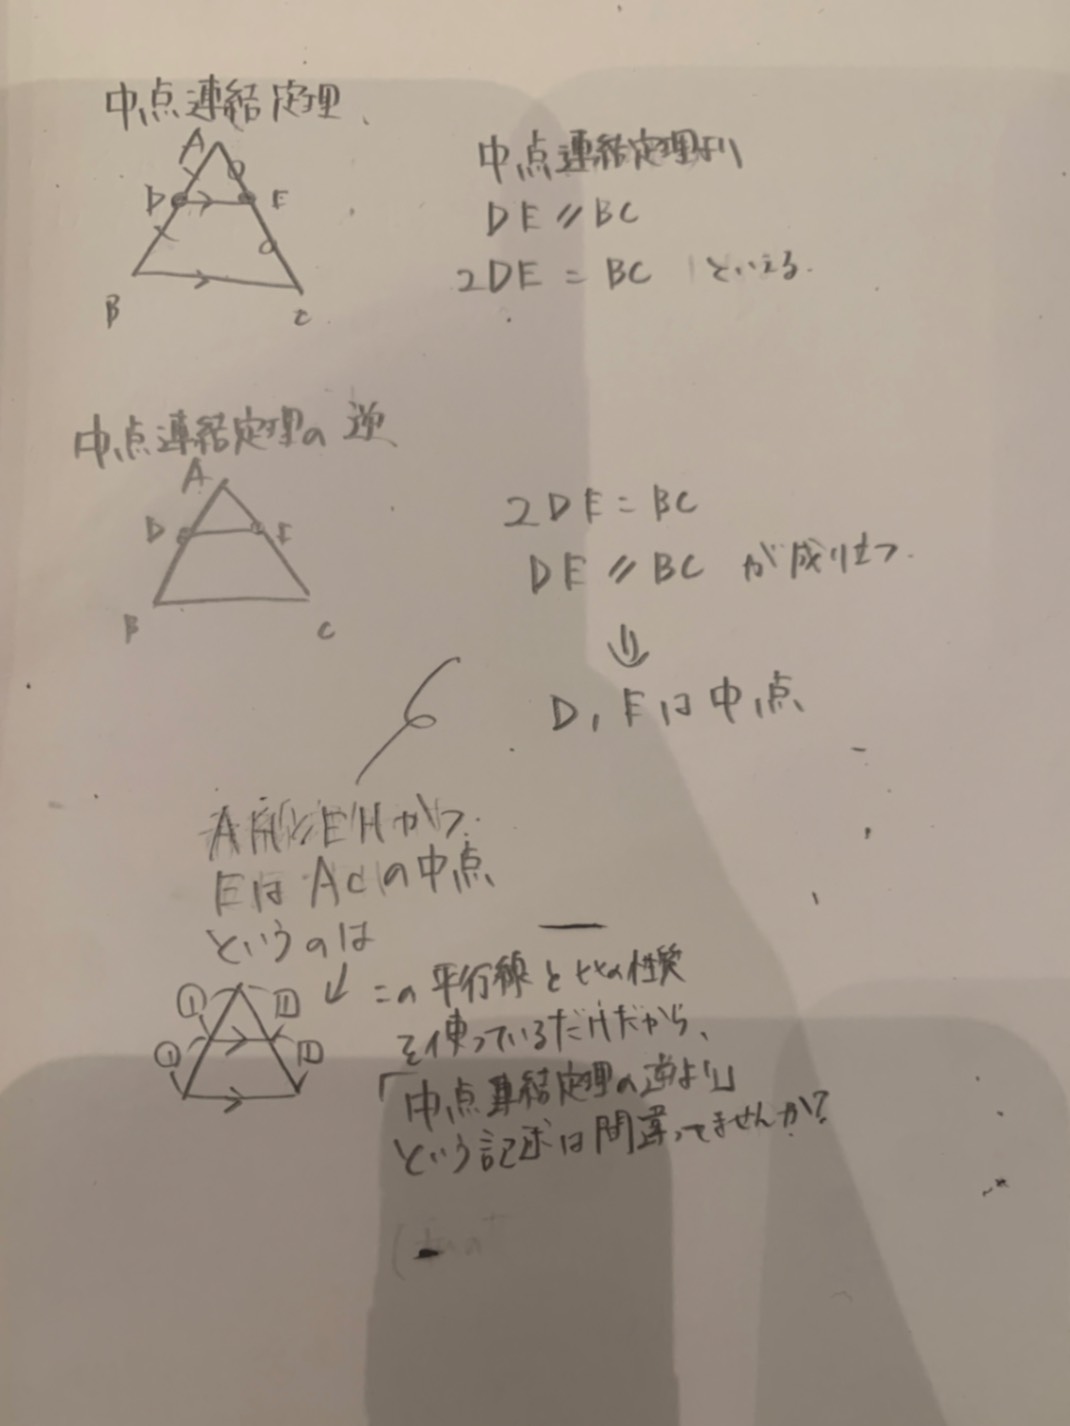 中点連結定理、
A
D E
B C
中点連結定理より
DE // BC
2DE = BC といえる.
中点連結定理の逆
A
D E
B C
2DE = BC
DE // BC が成り立つ.
⇓
D, Eは中点
かつ
EはACの中点
というのは
① 1
① 1
この平行線と比の性質
を使っているだけだから、
「中点連結定理の逆より」
という記述は間違ってませんか?